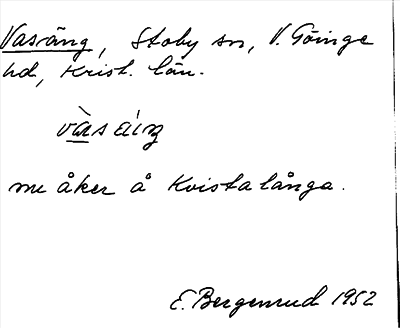 Vasäng, Stoby sn, V. Göinge
hd, Krist. län.
me åker å Kvistalånga.
E. Bergenrud 1952